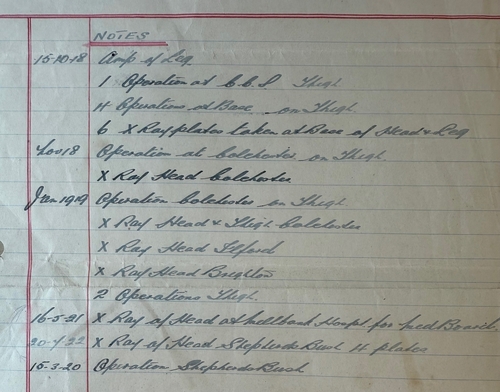 NOTES
15-10-18 Amp of Leg
1 Operation at C.C.S Thigh
4 Operations at Base on Thigh
6 X Ray plates taken at Base of Head & Leg
Nov 18 Operation at Colchester on Thigh
X Ray Head Colchester
Jan 1919 Operation Colchester on Thigh
X Ray Head & Thigh Colchester
X Ray Head Ilford
X Ray Head Brighton
2 Operations Thigh.
16-5-21 X Ray of Head at Millbank Hospt for Med Board
20-4-22 X Ray of Head Shepherds Bush 4 plates
15-3-20 Operation Shepherds Bush